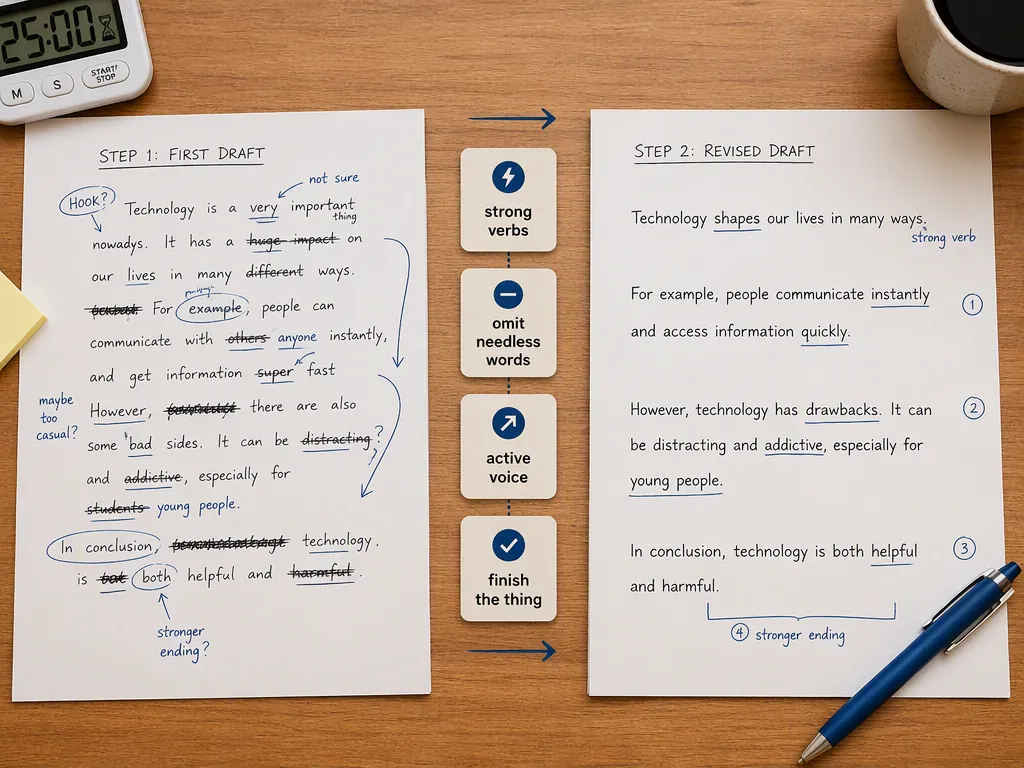 25:00
M
S
START/
STOP
STEP 1: FIRST DRAFT
Hook?
not sure
Technology is a very important
thing
nowadys. It has a huge impact on
our lives in many different ways.
For example, people can
communicate with others anyone instantly,
and get information super fast
maybe
too
casual?
However, there are also
some bad sides. It can be distracting?
and addictive, especially for
students young people.
In conclusion, technology.
is both helpful and harmful.
stronger
ending?
strong
verbs
omit
needless
words
active
voice
finish
the thing
STEP 2: REVISED DRAFT
Technology shapes our lives in many ways.
strong verb
For example, people communicate instantly
1
and access information quickly.
However, technology has drawbacks. It can
2
be distracting and addictive, especially for
young people.
In conclusion, technology is both helpful
3
and harmful.
4 stronger ending